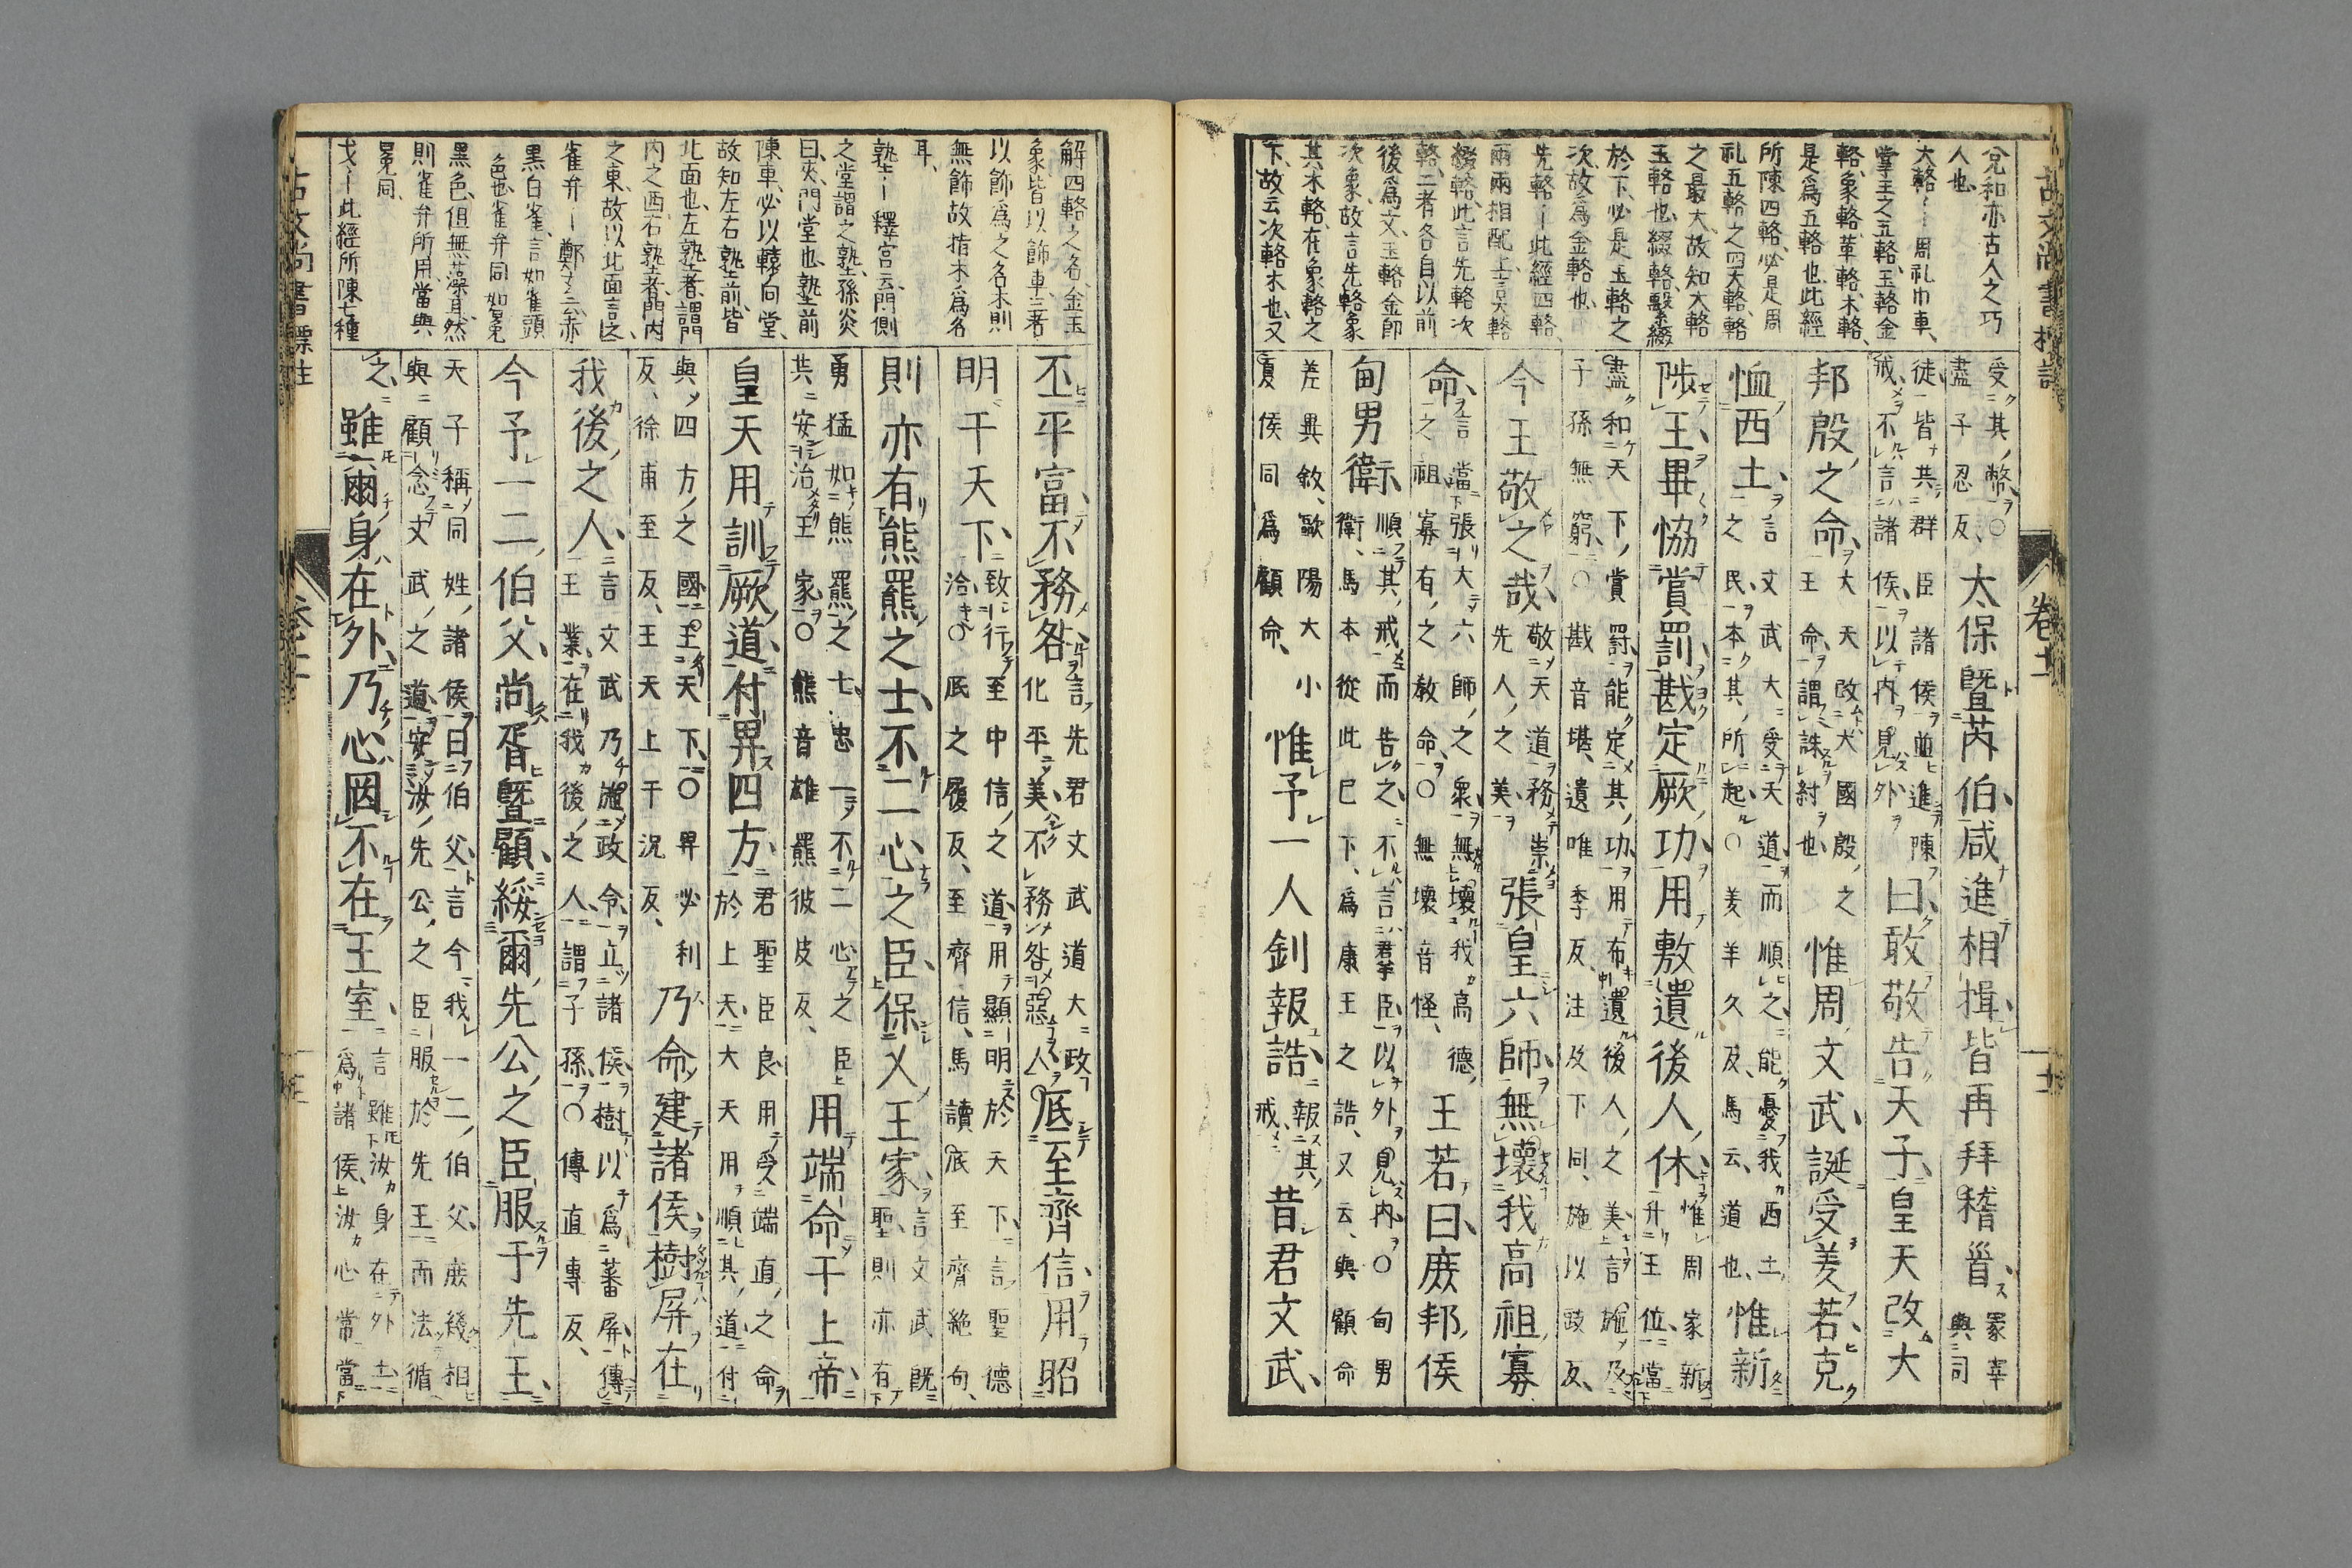 兌和亦古人之巧
人也
大輅ー周礼巾車、
掌王之五輅、玉輅金
輅、象輅、革輅、木輅、
是爲五輅也、此經
所陳四輅、必是周
礼五輅之四大輅、輅
之最大、故知大輅
玉輅也、綴輅、繫綴
於下、必是玉輅之
次、故爲金輅也、
先輅ー此經四輅、
兩兩相配、上言大輅
綴輅、此言先輅次
輅、二者各自以前
後爲文、玉輅金即
次象、故言先輅象
其木輅、在象輅之
下、故云次輅木也、又
受其幣、○盡子忍反、太保暨芮伯、咸進相揖、皆再拜稽首、冢宰與司
徒皆共群臣諸侯並進陳戒、不言諸侯以内見外曰、敢敬告天子、皇天改大
邦殷之命、大天改大國殷之王命、謂誅紂也惟周文武、誕受羑若、克
恤西土、言文武大受天道而順之能憂我西土之民、本其所起○羑羊久反、馬云、道也、惟新
陟王、畢協賞罰、戡定厥功、用敷遺後人休、惟周家新升王位當
盡和天下賞罰能定其功、用布遺後人之美、言施及子孫無窮、○戡音堪、遺唯季反、注及下同、施以豉反、
今王敬之哉、敬天道務崇先人之美張皇六師、無壞我高祖寡
命、言當張大六師之衆、無壞我高德之祖寡有之教命、○無壞音怪、王若曰、庶邦、侯
甸男衛、順其戒而告之、不言群臣以外見内、○甸男衛、馬本從此已下、爲康王之誥、又云、與顧命
差異敘、歐陽大小夏侯同爲顧命、惟予一人釗報誥、報其戒昔君文武、
解四輅之名、金玉
象皆以飾車、三者
以飾爲之名、木則
無飾故指木爲名
耳、
塾ー釋宮云、門側
之堂謂之塾、孫炎
曰、夾門堂也、塾前
陳車、必以轅向堂、
故知左右塾前、皆
北面也、左塾者、謂門
内之西、右塾者、門内
之東、故以北面言之、
雀弁ー鄭玄云、赤
黒白雀、言如雀頭
色也、雀弁同如冕
黒色、但無藻耳、然
則雀弁所用、當與
冕同、
戈ー此經所陳七種
丕平富、不務咎、言先君文武道大政化平美、不務咎惡人、底至齊信、用昭
明于天下、致行至中信之道、用顯明於天下、言聖德洽、○底之履反、至齊信、馬讀、底至齊絶句、
則亦有熊羆之士、不二心之臣、保乂王家、聖、言文武既則亦有
勇猛如熊羆之士、忠一不二心之臣共安治王家、○熊音雄羆彼皮反、用端命于上帝、
皇天用訓厥道、付畀四方、君聖臣良、用受端直之命於上天、大天用順其道、付
與四方之國、王天下、○畀必利反、徐甫至反、王天上于況反、乃命建諸侯、樹屏在
我後之人、言文武乃施政令、立諸侯、樹以爲蕃屏、傳王業在我後之人、謂子孫、○傳直專反、
今予一二伯父、尚胥曁顧、綏爾先公之臣、服于先王、
天子稱同姓諸侯曰伯父、言今我一二伯父、庶幾相與顧念文武之道、安汝先公之臣、服於先王而法循
之、雖爾身在外、乃心罔不在王室、言雖汝身在外土爲諸侯、汝心常當